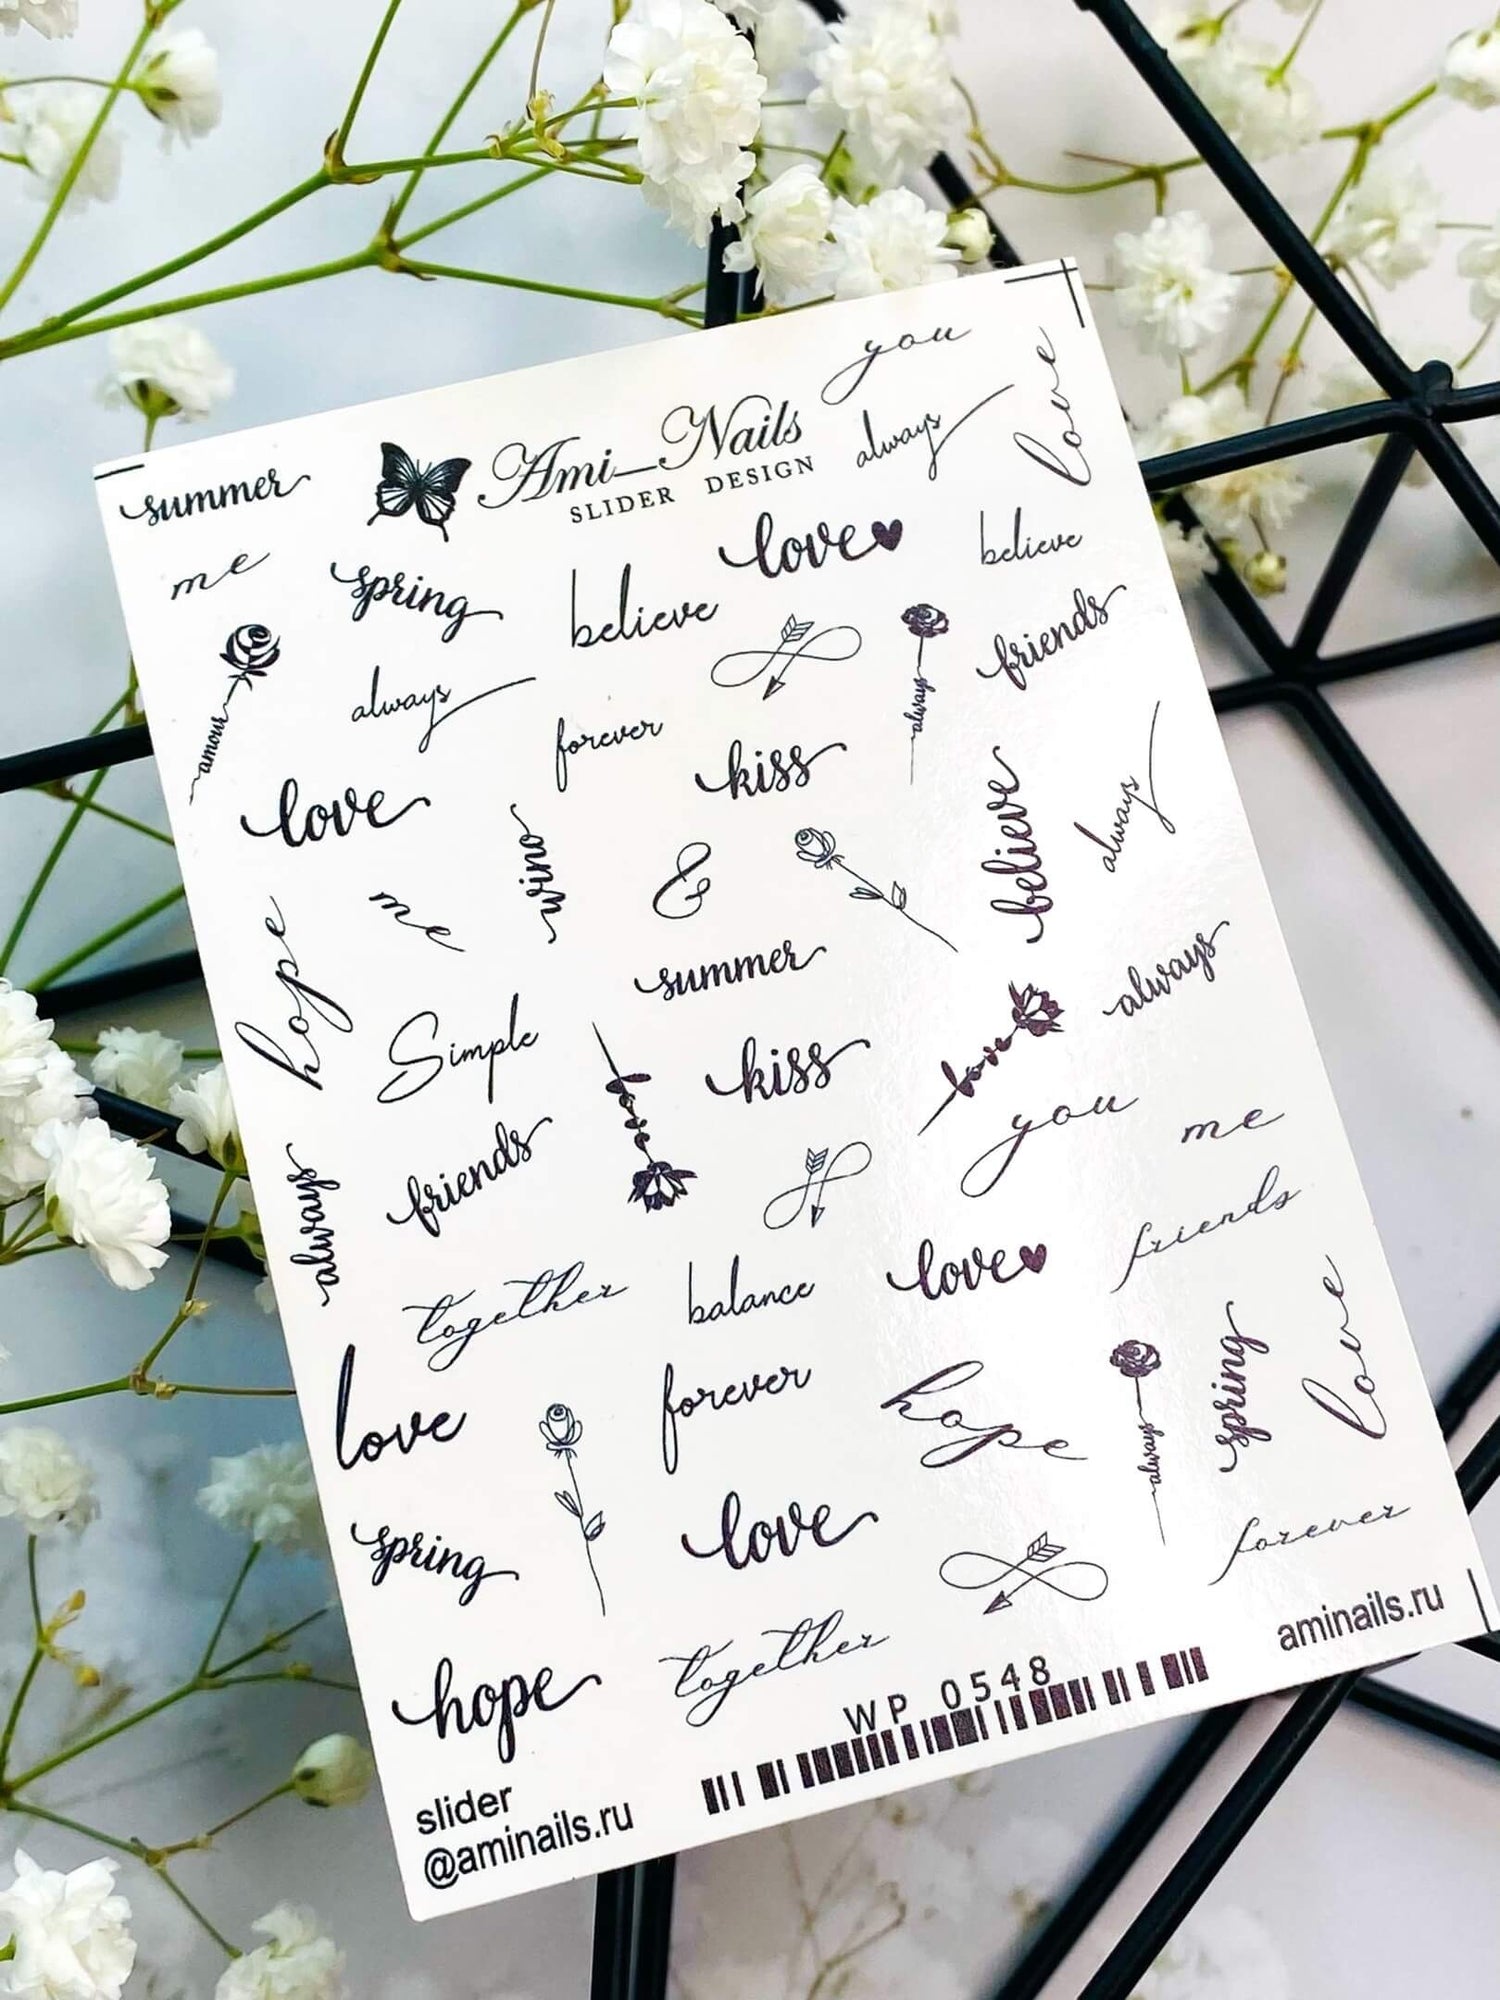 you
always
love
Ami_Nails
SLIDER DESIGN
summer
me
spring
believe
love
believe
amour
always
forever
always
friends
love
wino
kiss
believe
always
hope
me
&
summer
always
Simple
kiss
love
you
me
always
friends
friends
together
balance
love
love
forever
hope
always
spring
love
spring
love
forever
hope
together
WP 0548
aminails.ru
slider
@aminails.ru